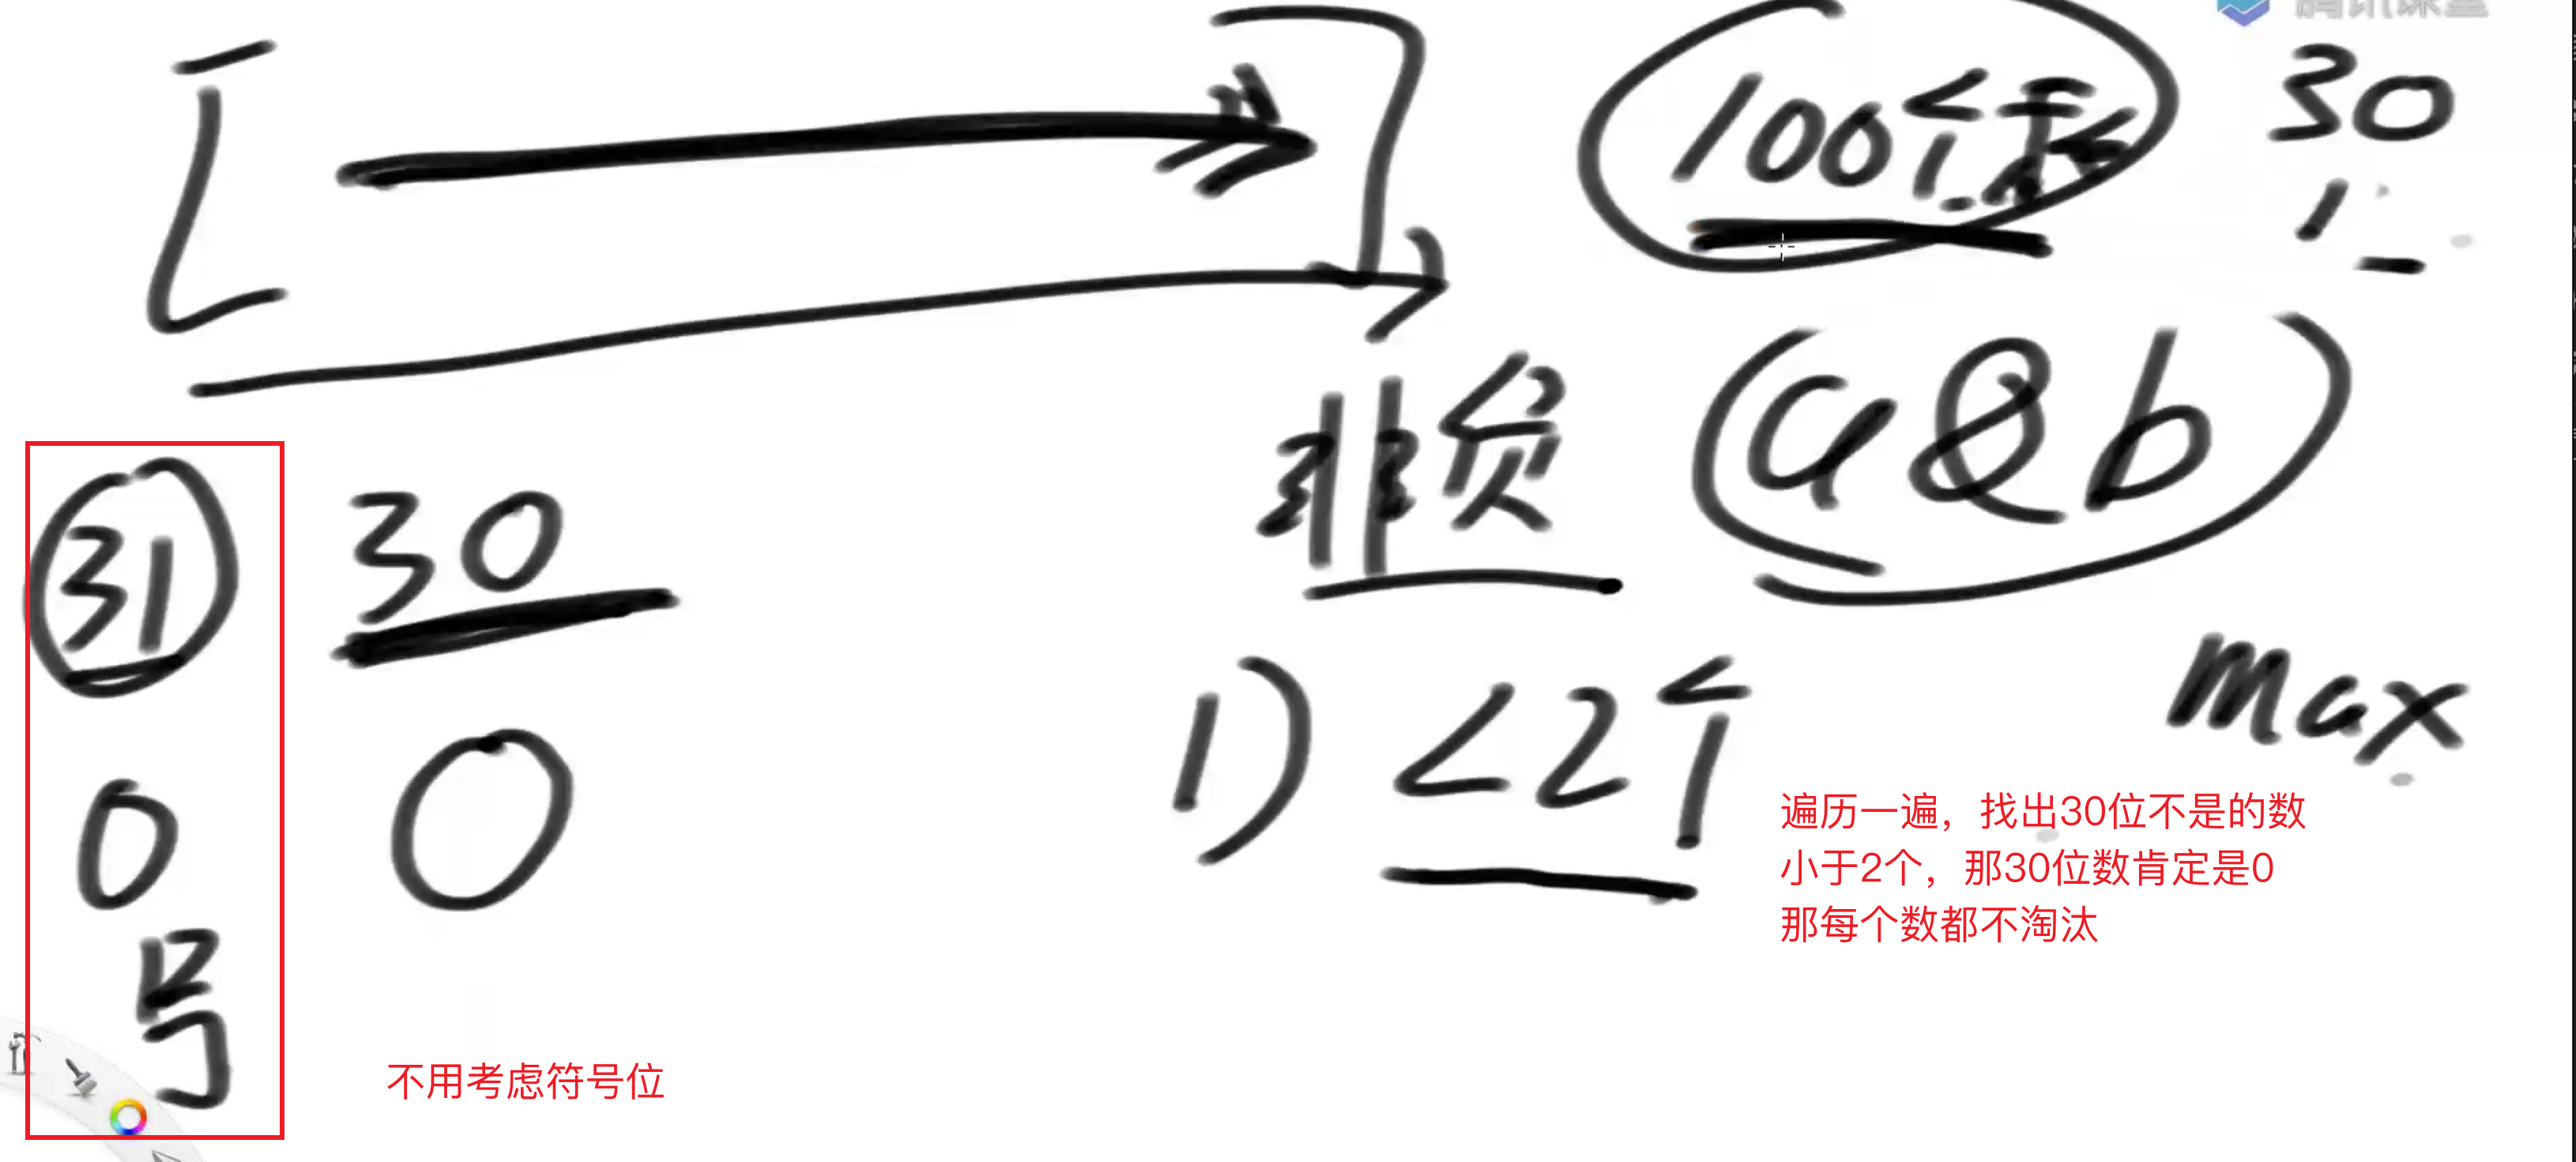 腾讯课堂
100个
30
1
非负
(a & b)
31
30
0
0
号
1) <2个
max
遍历一遍，找出30位不是的数
小于2个，那30位数肯定是0
那每个数都不淘汰
不用考虑符号位